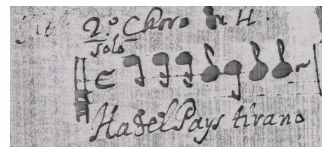 2º Choro
Solo
Hasel Pays tirano